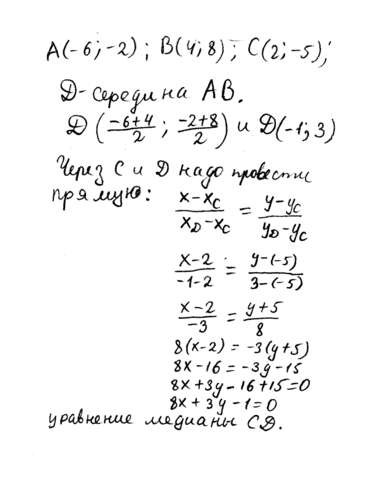 A(-6;-2); B(4;8); C(2;-5);
D-середина AB.
D(\frac{-6+4}{2}; \frac{-2+8}{2}) и D(-1;3)
Через C и D надо провести
прямую: \frac{x-x_C}{x_D-x_C} = \frac{y-y_C}{y_D-y_C}
\frac{x-2}{-1-2} = \frac{y-(-5)}{3-(-5)}
\frac{x-2}{-3} = \frac{y+5}{8}
8(x-2) = -3(y+5)
8x-16 = -3y-15
8x+3y-16+15=0
8x+3y-1=0
уравнение медианы CD.